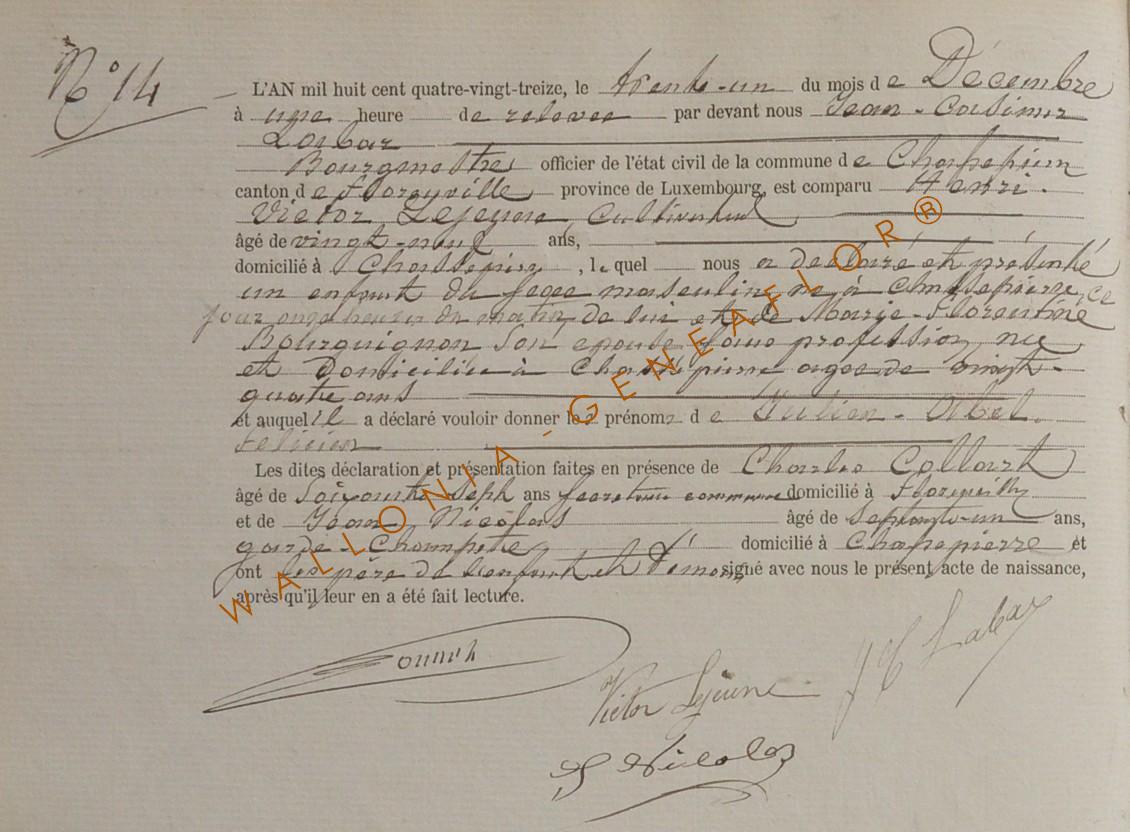 N° 14
L'AN mil huit cent quatre-vingt-treize, le trente-un du mois de Décembre
à une heure de relevee par devant nous Jean-Casimir
Labar
Bourgmestre officier de l'état civil de la commune de Chassepierre
canton de Florenville province de Luxembourg, est comparu Henri
Victor Lejeune Cultivateur
âgé de vingt-neuf ans,
domicilié à Chassepierre, lequel nous a déclaré et présenté
un enfant du sexe masculin, né à Chassepierre, ce
jour onze heures du matin de lui et de Marie-Florentine
Bourguignon son epouse sans profession, nee
et domiciliée à Chassepierre agee de vingt-
quatre ans
et auquel il a déclaré vouloir donner les prénoms de Julien-Abel
Felicien
Les dites déclaration et présentation faites en présence de Charles Collart
âgé de soixante sept ans secretaire communal domicilié à Florenville
et de Jean Nicolas âgé de septante-un ans,
garde-Champetre domicilié à Chassepierre et
ont les père de l'enfant et témoins signé avec nous le présent acte de naissance,
après qu'il leur en a été fait lecture.
JC Labar
Victor Lejeune
J Nicolas
WALLONIA-GENEAFLOR®